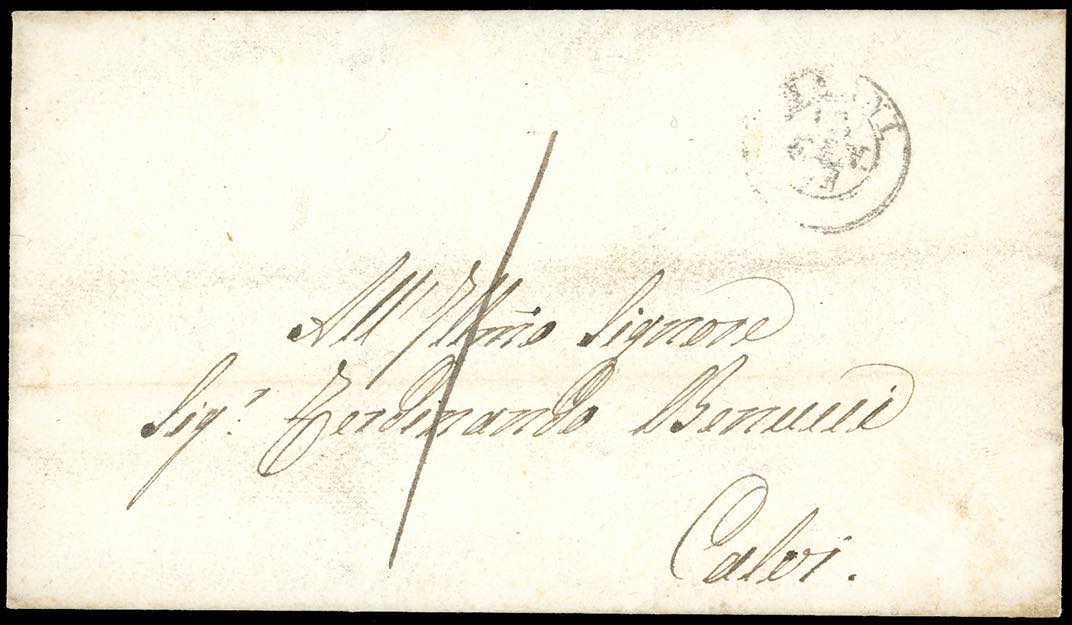 All' Illm̃o Signore
Sig.r Ferdinando Benucci
Calvi.